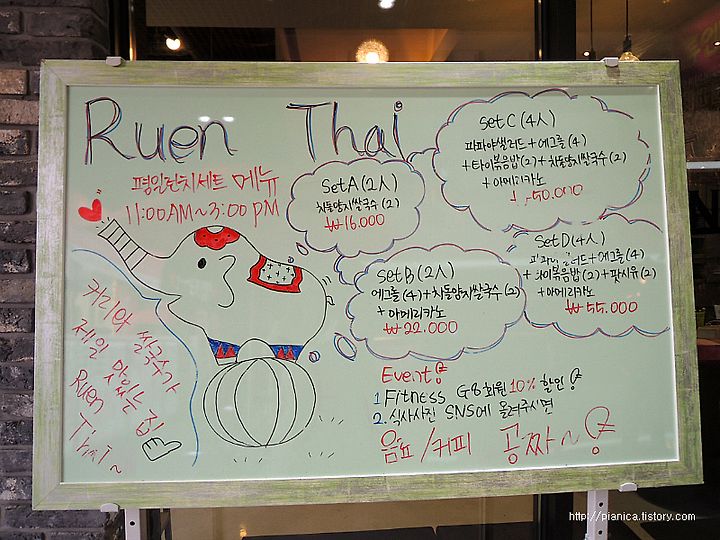 Ruen Thai
평일런치세트 메뉴
11:00AM~3:00PM
setA(2人)
차돌양지쌀국수(2)
₩16.000
setB(2人)
에그롤(4)+차돌양지쌀국수(2)
+아메리카노
₩22.000
setC(4人)
파파야샐러드+에그롤(4)
+타이볶음밥(2)+차돌양지쌀국수(2)
+아메리카노
50.000
setD(4人)
러드+에그롤(4)
+타이볶음밥(2)+팟시유(2)
+아메리카노
₩55.000
커리와 쌀국수가
제일 맛있는 집
Ruen
Thai~
Event
1 Fitness G8회원 10% 할인
2. 식사사진 SNS에 올려주시면
음료/커피 공짜~
http://pianica.tistory.com